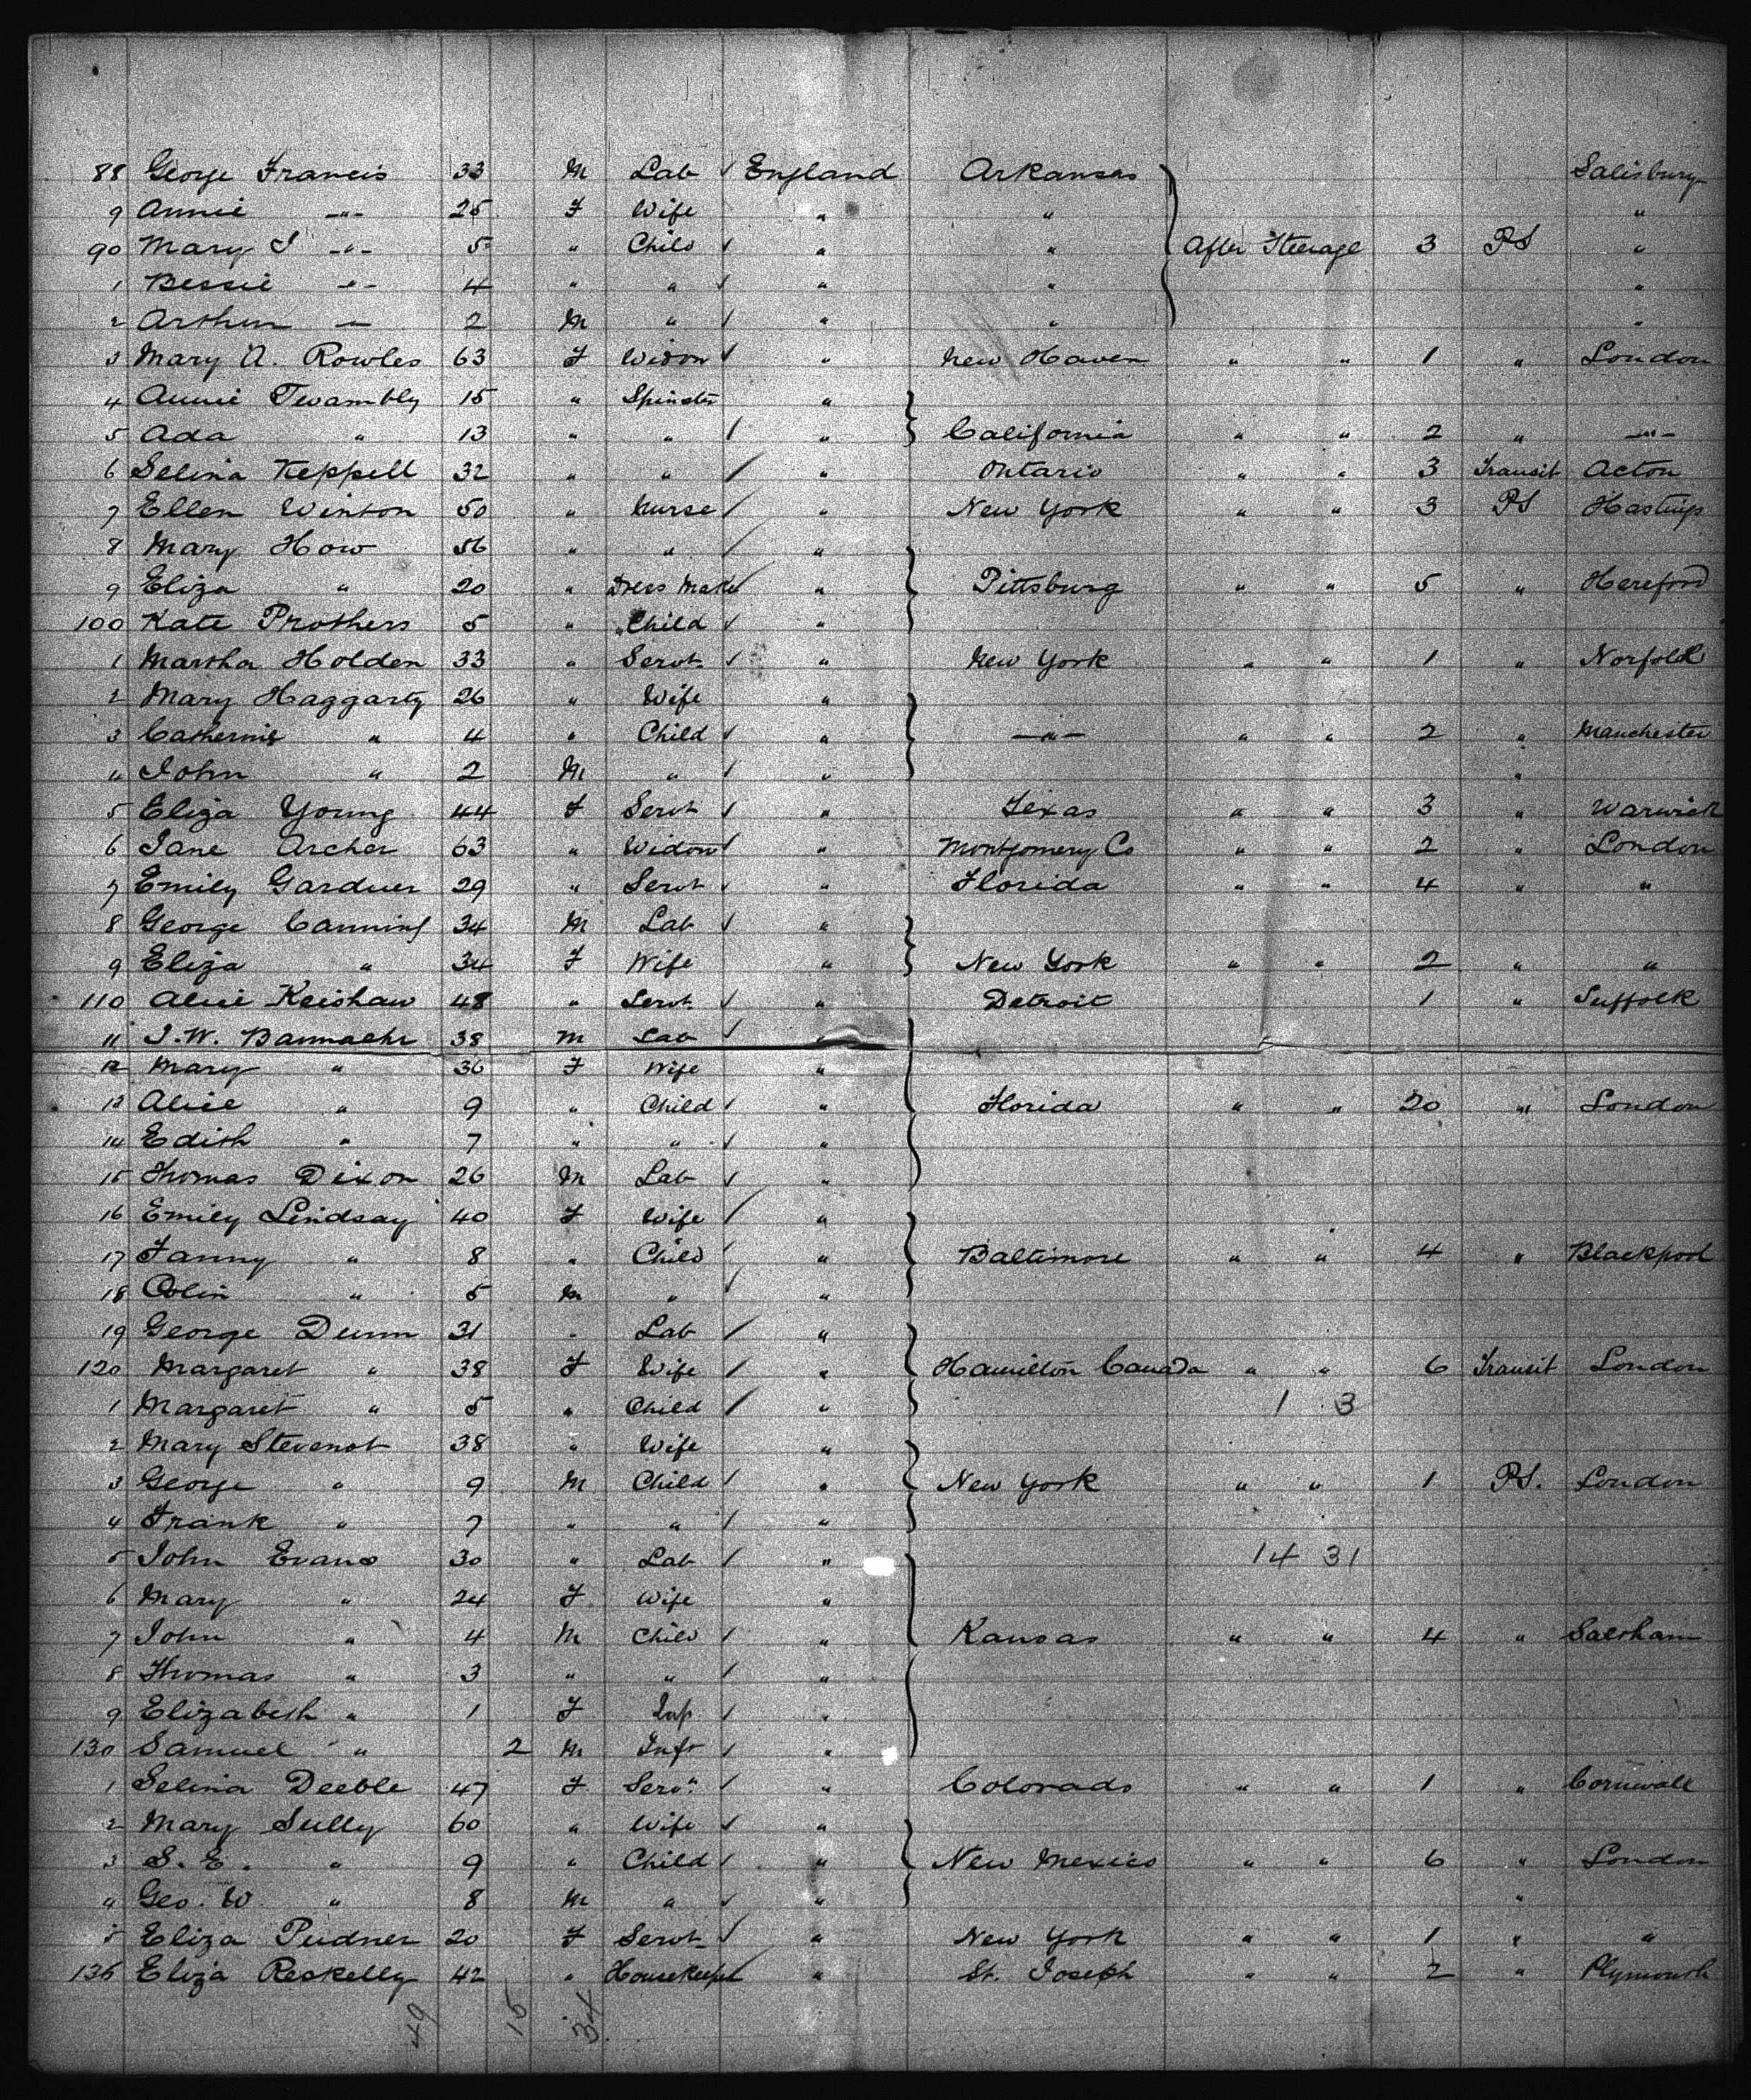 88 George Francis 33 M Lab England Arkansas Salisbury
9 Annie -"- 25 F Wife " " "
90 Mary J -"- 5 " Child " " After Steerage 3 PS "
1 Bessie -"- 4 " " " " "
2 Arthur -"- 2 M " " " "
3 Mary A. Rowles 63 F Widow " New Haven " " 1 " London
4 Annie Twambly 15 " Spinster "
5 Ada " 13 " " " California " " 2 " -"-
6 Selina Keppell 32 " " " Ontario " " 3 Transit Acton
7 Ellen Winton 50 " Nurse " New York " " 3 PS Hastings
8 Mary How 56 " " "
9 Eliza " 20 " Dress Maker " Pittsburg " " 5 " Hereford
100 Kate Prothers 5 " Child "
1 Martha Holden 33 " Servt " New York " " 1 " Norfolk
2 Mary Haggarty 26 " Wife "
3 Catherine " 4 " Child " -"- " " 2 " Manchester
4 John " 2 M " " "
5 Eliza Young 44 F Servt " Texas " " 3 " Warwick
6 Jane Archer 63 " Widow " Montgomery Co " " 2 " London
7 Emily Gardner 29 " Servt " Florida " " 4 " "
8 George Canning 34 M Lab "
9 Eliza " 34 F Wife " New York " " 2 " "
110 Alice Keishaw 48 " Servt " Detroit 1 " Suffolk
11 J.W. 38 M Lab "
12 Mary " 36 F Wife "
13 Alice " 9 " Child " Florida " " 20 " London
14 Edith " 7 " " "
15 Thomas Dixon 26 M Lab "
16 Emily Lindsay 40 F Wife "
17 Fanny " 8 " Child " Baltimore " " 4 " Blackpool
18 Colin " 5 M " "
19 George Dunn 31 " Lab "
120 Margaret " 38 F Wife " Hamilton Canada " " 6 Transit London
1 Margaret " 5 " Child " 1 3
2 Mary Stevenot 38 " Wife "
3 George " 9 M Child " New York " " 1 PS. London
4 Frank " 7 " " "
5 John Evans 30 " Lab " 14 31
6 Mary " 24 F Wife "
7 John " 4 M Child " Kansas " " 4 "
8 Thomas " 3 " " "
9 Elizabeth " 1 F Inf "
130 Samuel " 2 M Inft "
1 Selina Deeble 47 F Servt " Colorado " " 1 " Cornwall
2 Mary Sully 60 " Wife "
3 S. E. " 9 " Child " New Mexico " " 6 " London
4 Geo. W. " 8 M " " "
5 Eliza Pudner 20 F Servt " New York " " 1 " "
136 Eliza Reskelly 42 " Housekeeper " St. Joseph " " 2 " Plymouth
49 15 34